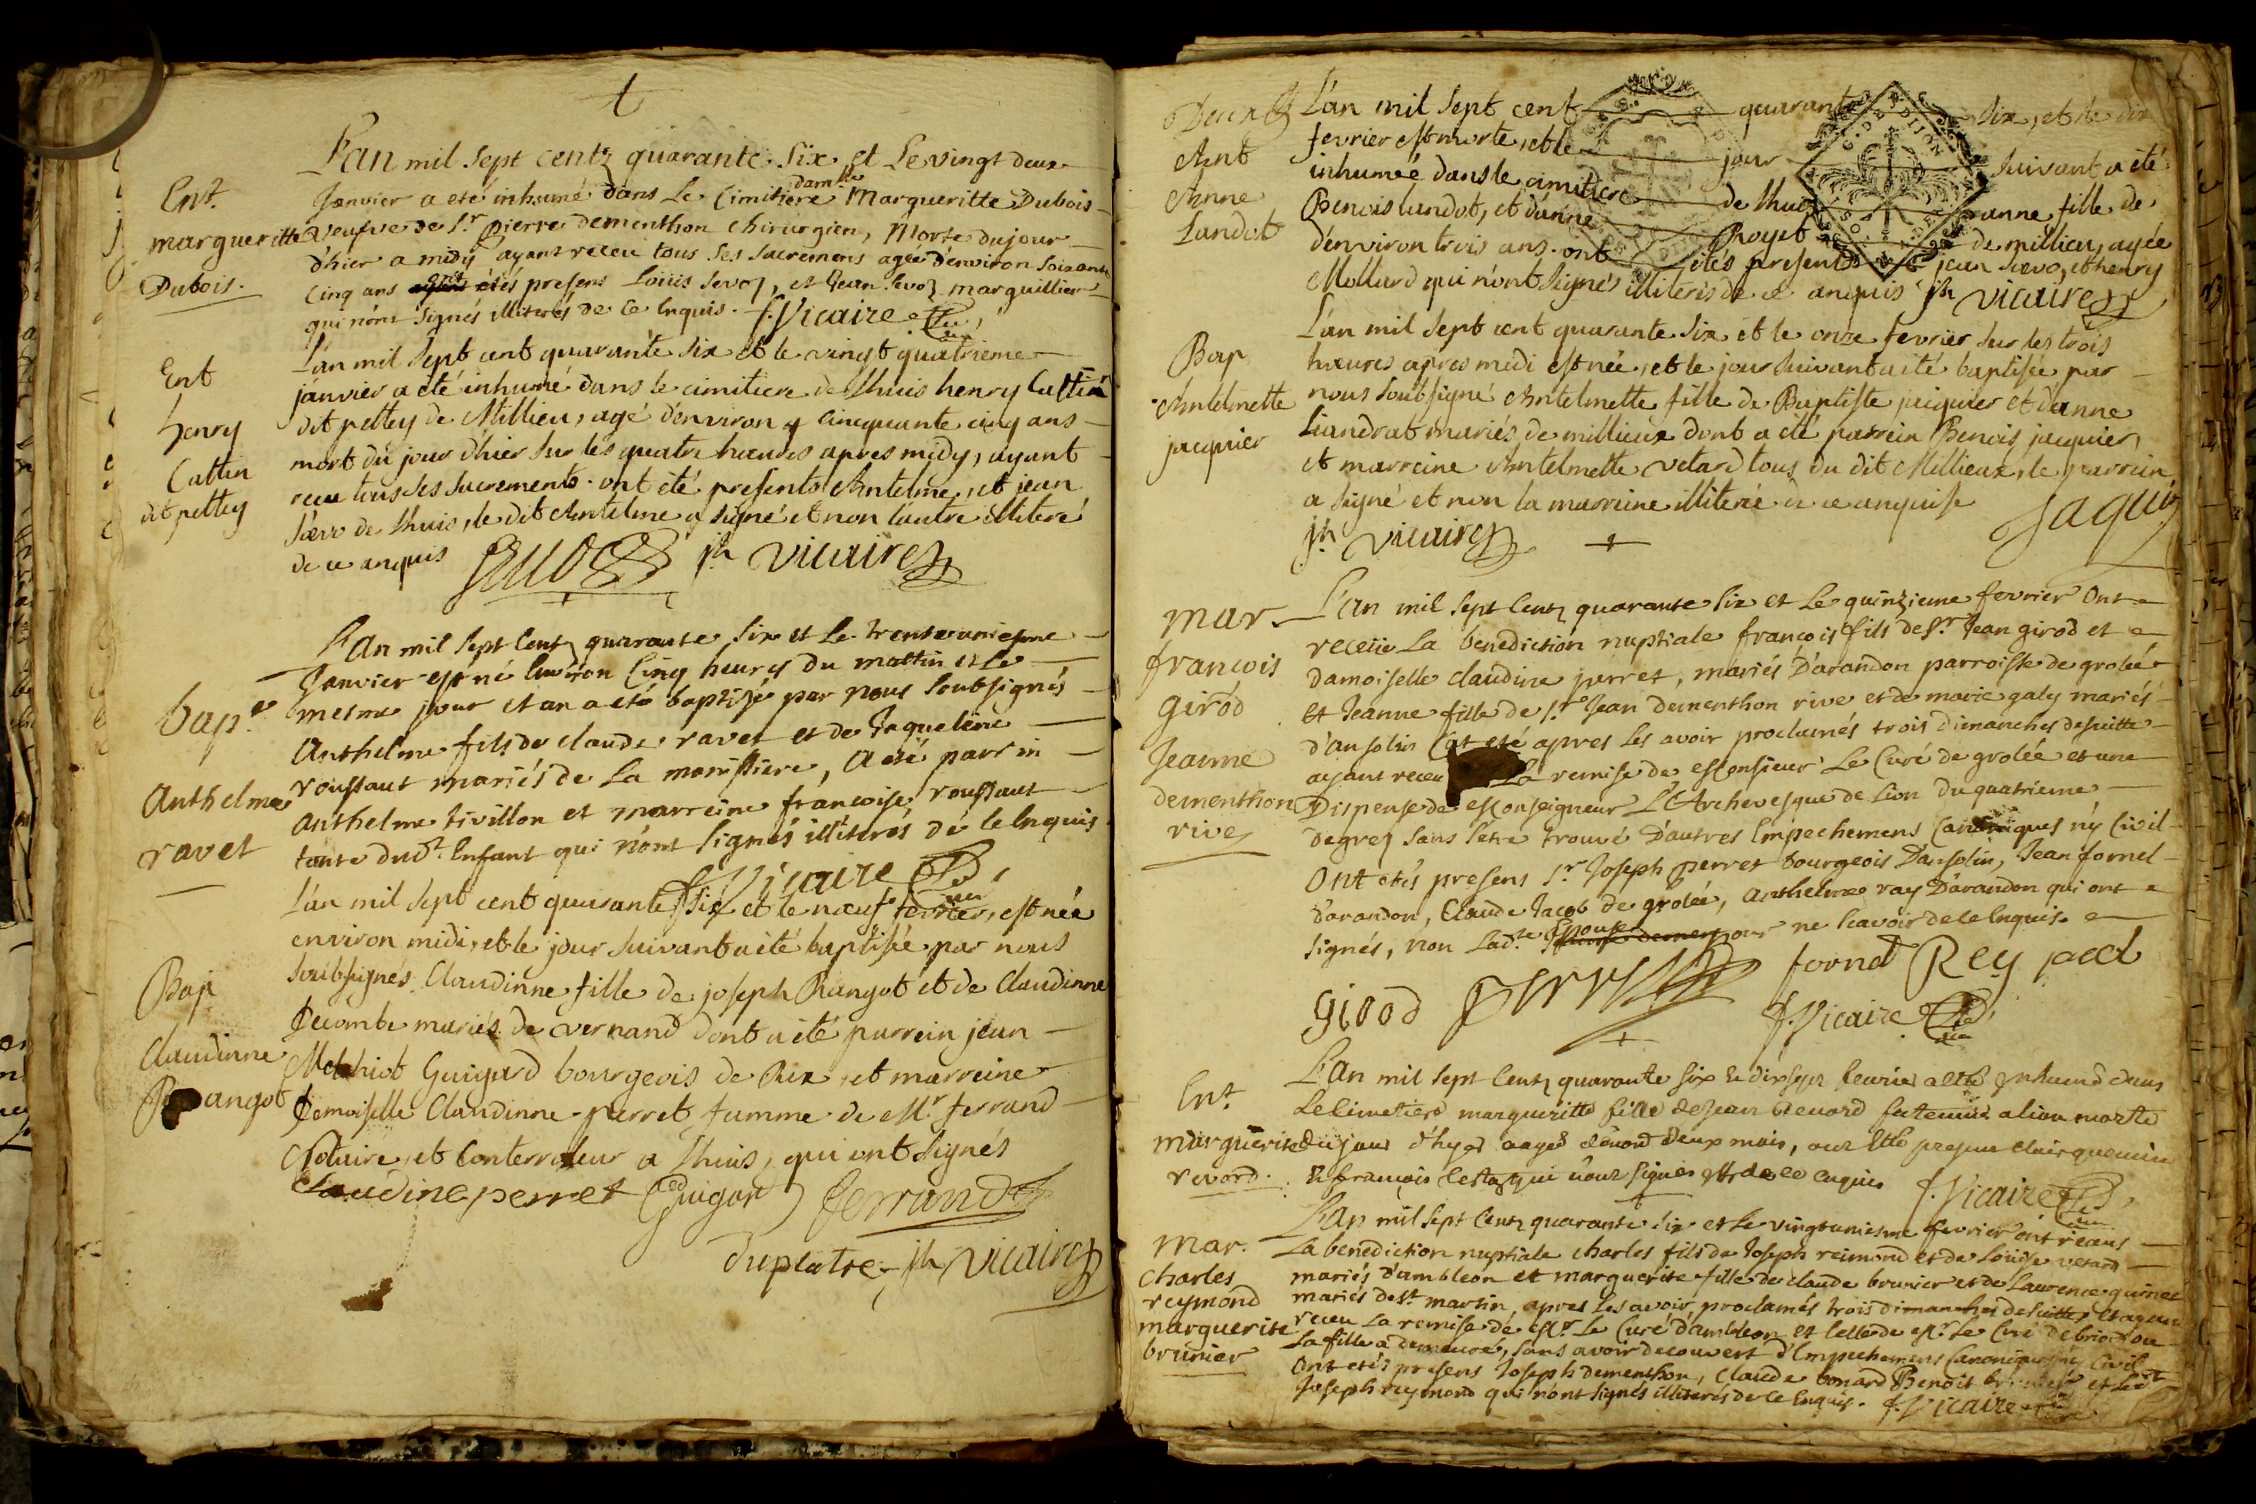 L'an mil sept centz quarante six et Le vingt deux
Janvier a eté inhumé dans Le Cimitiere dam.lle Margueritte Dubois
veufve de S.r pierre dementhon chirurgien, Morte du jour
d'hier a midy ayant receu tous ses sacremens agée d'environ soixante
cinq ans étés presens Loüis sevoz, et Jean sevoz marguillier
qui n'ont signés illiterés de ce Enquis. f. Vicaire
Ent.
margueritte
Dubois.
L'an mil sept cent quarante six et le vingt quatrieme
janvier a eté inhumé dans le cimitiere de Lhuis henry Cattin
dit pettey de Millieu, agé d'environ cincquante cinq ans
mort du jour d'hier sur les quatre heures apres midy, ayant
receu tous ses sacrements. ont été presents Antelme, et jean
sevo de Lhuis, le dit Antelme a signé et non l'autre illiteré
de ce anquis Sevoz jh vicaire
Ent
henry
Cattin
dit pettey
L'An mil sept Centz quarante six et Le trente uniesme
Janvier est né Environ Cinq heures du mattin et Le
mesme jour et an a eté baptizé par nous soubsignés
Anthelme fils de claude ravet et de Jaqueline
roussaut mariés de La monissiere, A eté parrin
anthelme tivillon et marreine francoise roussaut
tante dud.t Enfant qui n'ont signés illiterés de Ce Enquis
f. Vicaire
bap.e
Anthelme
ravet
L'an mil sept cent quarante six et le neuf fevrier, est née
environ midi, et le jour suivant a été baptisée par nous
soubsignés Claudinne fille de joseph Rangot et de Claudinne
Decombe mariés de vernand dont a été parrein jean
Melchiot Guigard bourgeois de Rix, et marreine
Demoiselle Claudinne perret fumme de M.r ferrand
Notaire, et Conterroleur a Lhuis, qui ont signés
Claudine perret Guigard ferrand
duplatre jh vicaire
Bap
Claudinne
Rangot
Decex
Ant
Anne
Landot
L'an mil sept cent quarante six, et le dix
fevrier est morte, et le jour suivant a été
inhumée dans le cimitiere de Lhuis anne fille de
Benois landot, et d'anne Royet de millieu, agée
d'environ trois ans. ont étés presents jean sevo, et henry
Mollard qui n'ont signés illiterés de ce anquis jh vicaire
L'an mil sept cent quarante six et le onze fevrier sur les trois
heures apres midi est née, et le jour suivant a été baptisée par
nous soubsigné Antelmette fille de Baptiste jacquier et d'anne
Liandrat mariés de millieux dont a eté parrein Benois jacquier,
et marreine Antelmette vetard tous du dit Millieux, le parrein
a signé et non la marreine illiterée de ce anquise
jh vicaire Jaquié
Bap
Antelmette
jacquier
L'an mil sept Centz quarante six et Le quinzieme fevrier Ont
receüe La benediction nuptiale françois fils de s.r Jean girod et
damoiselle claudine perret, mariés D'arandon parroisse de grolée
Et Jeanne fille de s.r Jean dementhon rive et de marie galy mariés
d'ansolin Cat eté apres Les avoir proclamés trois dimanches desuitte
ayant receu La remise de Monsieur Le Curé de grolée et une
Dispense de Monseigneur L'Archevesque de Lion du quatrieme
degrez sans s'etre trouvé D'autres Empechemens Canoniques n'y Civil
Ont etés presens s.r Joseph perret bourgeois D'ansolin, Jean fornel
d'arandon, Claude Jacob de grolée, anthelme ray D'arandon qui ont
signés, non Lad.te Epouse pour ne scavoir de ce Enquis.
girod perret fornel Rey jacob
f. Vicaire
mar.
françois
girod
Jeanne
dementhon
rive
L'An mil sept Centz quarante six Le dixsept fevrier a eté Inhumé dans
Le Cimetiere margueritte fille de Jean revord alion morte
du jour d'hyer aagée d'environ deux mois, ont eté presens
Et françois qui n'ont signés de ce enquis f. Vicaire
Ent.
marguerite
revord.
L'An mil sept Centz quarante six et Le vingtuniesme fevrier ont receus
La benediction nuptiale charles fils de Joseph reimond et de Louise vetard
mariés d'ambleon et marguerite fille de claude brunier et de Laurence guinet
mariés de s.t martin, apres Les avoir proclamés trois dimanches desuitte, et ayant
receu La remise de M.r Le Curé d'ambleon et Celle de M.r Le Curé de briord ou
La fille a demeuré, sans avoir decouvert d'Empechemens Canoniques ny Civil
Ont etés presens Joseph dementhon, Claude bonard Benoit brunier et led.t
Joseph reymond qui n'ont signés illiterés de Ce Enquis. f. Vicaire
mar.
Charles
reymond
marguerite
brunier
G. DE DIJON